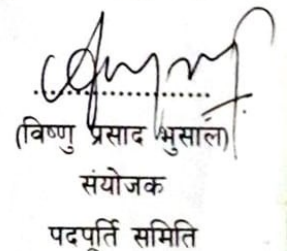 (विष्णु प्रसाद भुसाल)
संयोजक
पदपूर्ति समिति